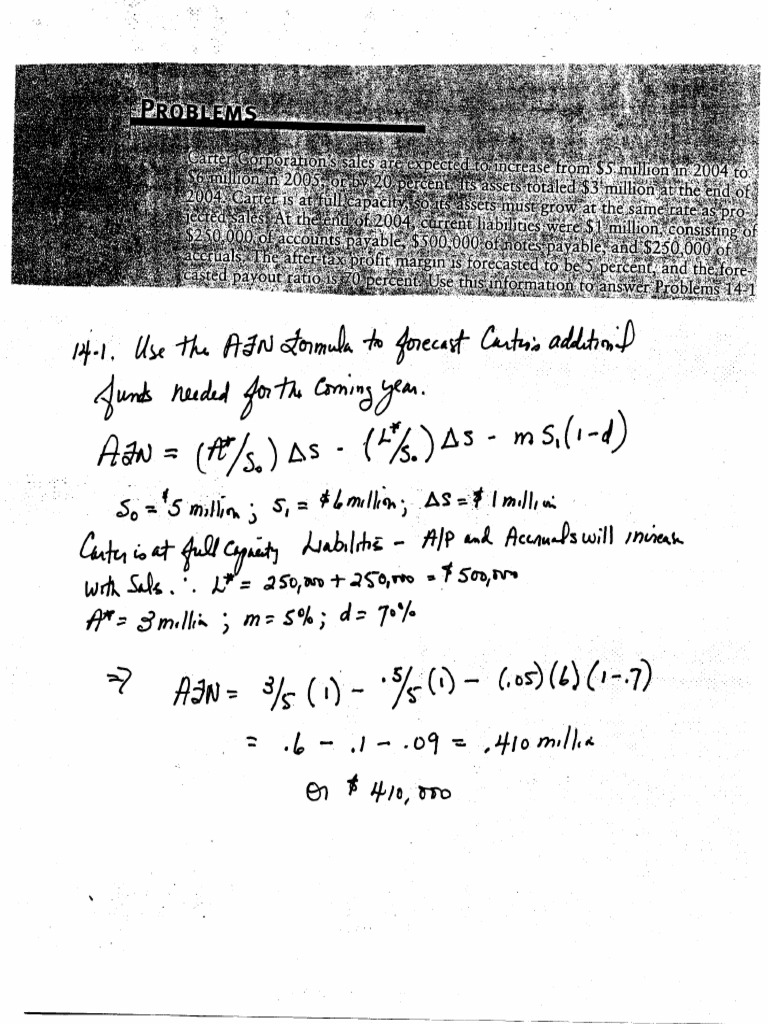 PROBLEMS
Carter Corporation's sales are expected to increase from $5 million in 2004 to
$6 million in 2005, or by 20 percent. Its assets totaled $3 million at the end of
2004. Carter is at full capacity, so its assets must grow at the same rate as pro-
jected sales. At the end of 2004, current liabilities were $1 million, consisting of
$250,000 of accounts payable, $500,000 of notes payable, and $250,000 of
accruals. The after-tax profit margin is forecasted to be 5 percent, and the fore-
casted payout ratio is 70 percent. Use this information to answer Problems 14-1
14-1. Use the AFN Formula to forecast Carter's additional
funds needed for the coming year.
AFN = (A*/S₀) ΔS - (L*/S₀) ΔS - m S₁(1-d)
S₀ = $5 million ; S₁ = $6 million; ΔS = $1 million
Carter is at full Capacity Liabilities - A/P and Accruals will increase
with Sales. ∴ L* = 250,000 + 250,000 = $500,000
A* = 3 million ; m = 5% ; d = 70%
⇒ AFN = 3/5 (1) - .5/5 (1) - (.05)(6)(1-.7)
= .6 - .1 - .09 = .410 million
or $410,000